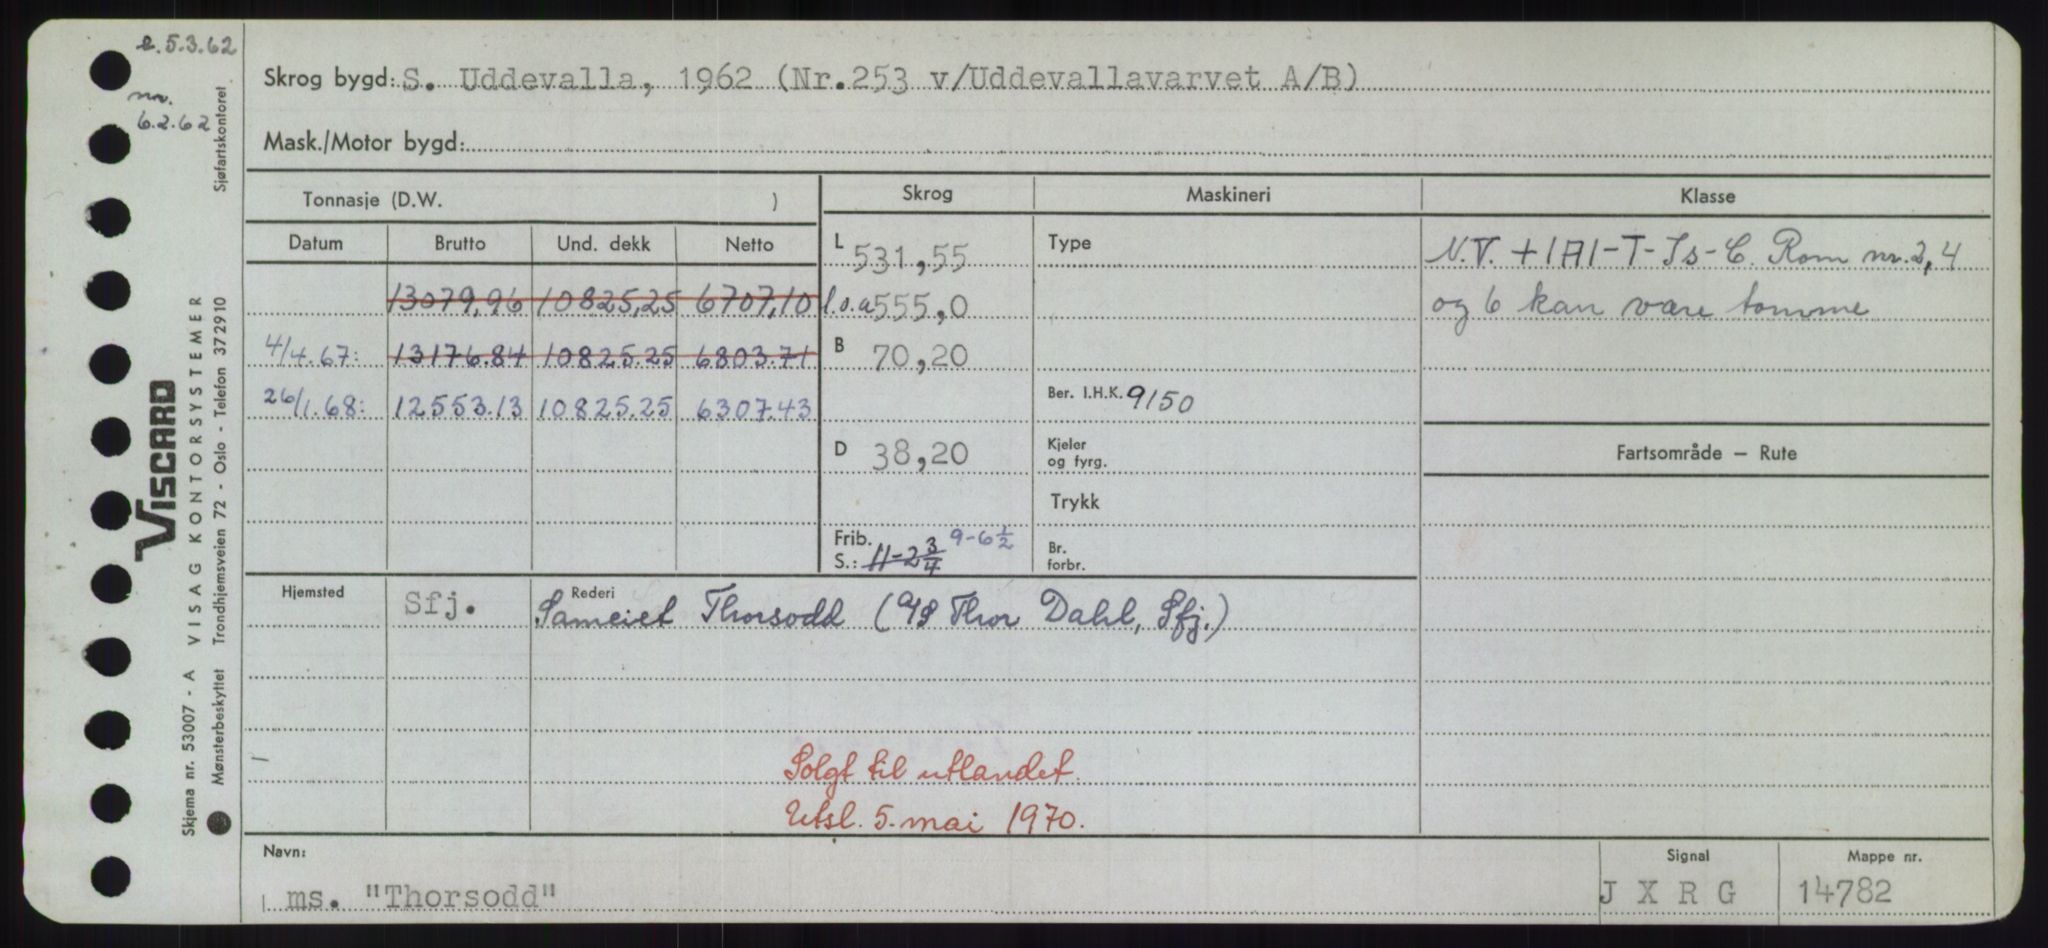 e. 5.3.62
nr.
6.2.62
Sjøfartskontoret
VISCARD
VISAG KONTORSYSTEMER
Skjema nr. 53007 - A
Mønsterbeskyttet Trondhjemsveien 72 - Oslo - Telefon 372910
Skrog bygd: S. Uddevalla, 1962 (Nr.253 v/Uddevallavarvet A/B)
Mask./Motor bygd:
Tonnasje (D.W. )
Skrog
Maskineri
Klasse
Datum Brutto Und. dekk Netto
13079,96 10825,25 6707,10
4/4.67: 13176.84 10825.25 6803.71
26/1.68: 12553.13 10825.25 6307.43
L 531,55
l.o.a 555,0
B 70,20
D 38,20
Frib. S.: 11-2 3/4 9-6 1/2
Type
Ber. I.H.K. 9150
Kjeler og fyrg.
Trykk
Br. forbr.
N.V. +1A1-T-Is-C. Rom nr. 2, 4
og 6 kan være tomme
Fartsområde – Rute
Hjemsted Sfj.
Rederi
Sameiet Thorsodd (A/S Thor Dahl, Sfj.)
Solgt til utlandet.
Utsl. 5. mai 1970.
Navn:
ms. "Thorsodd"
Signal
J X R G
Mappe nr.
14782